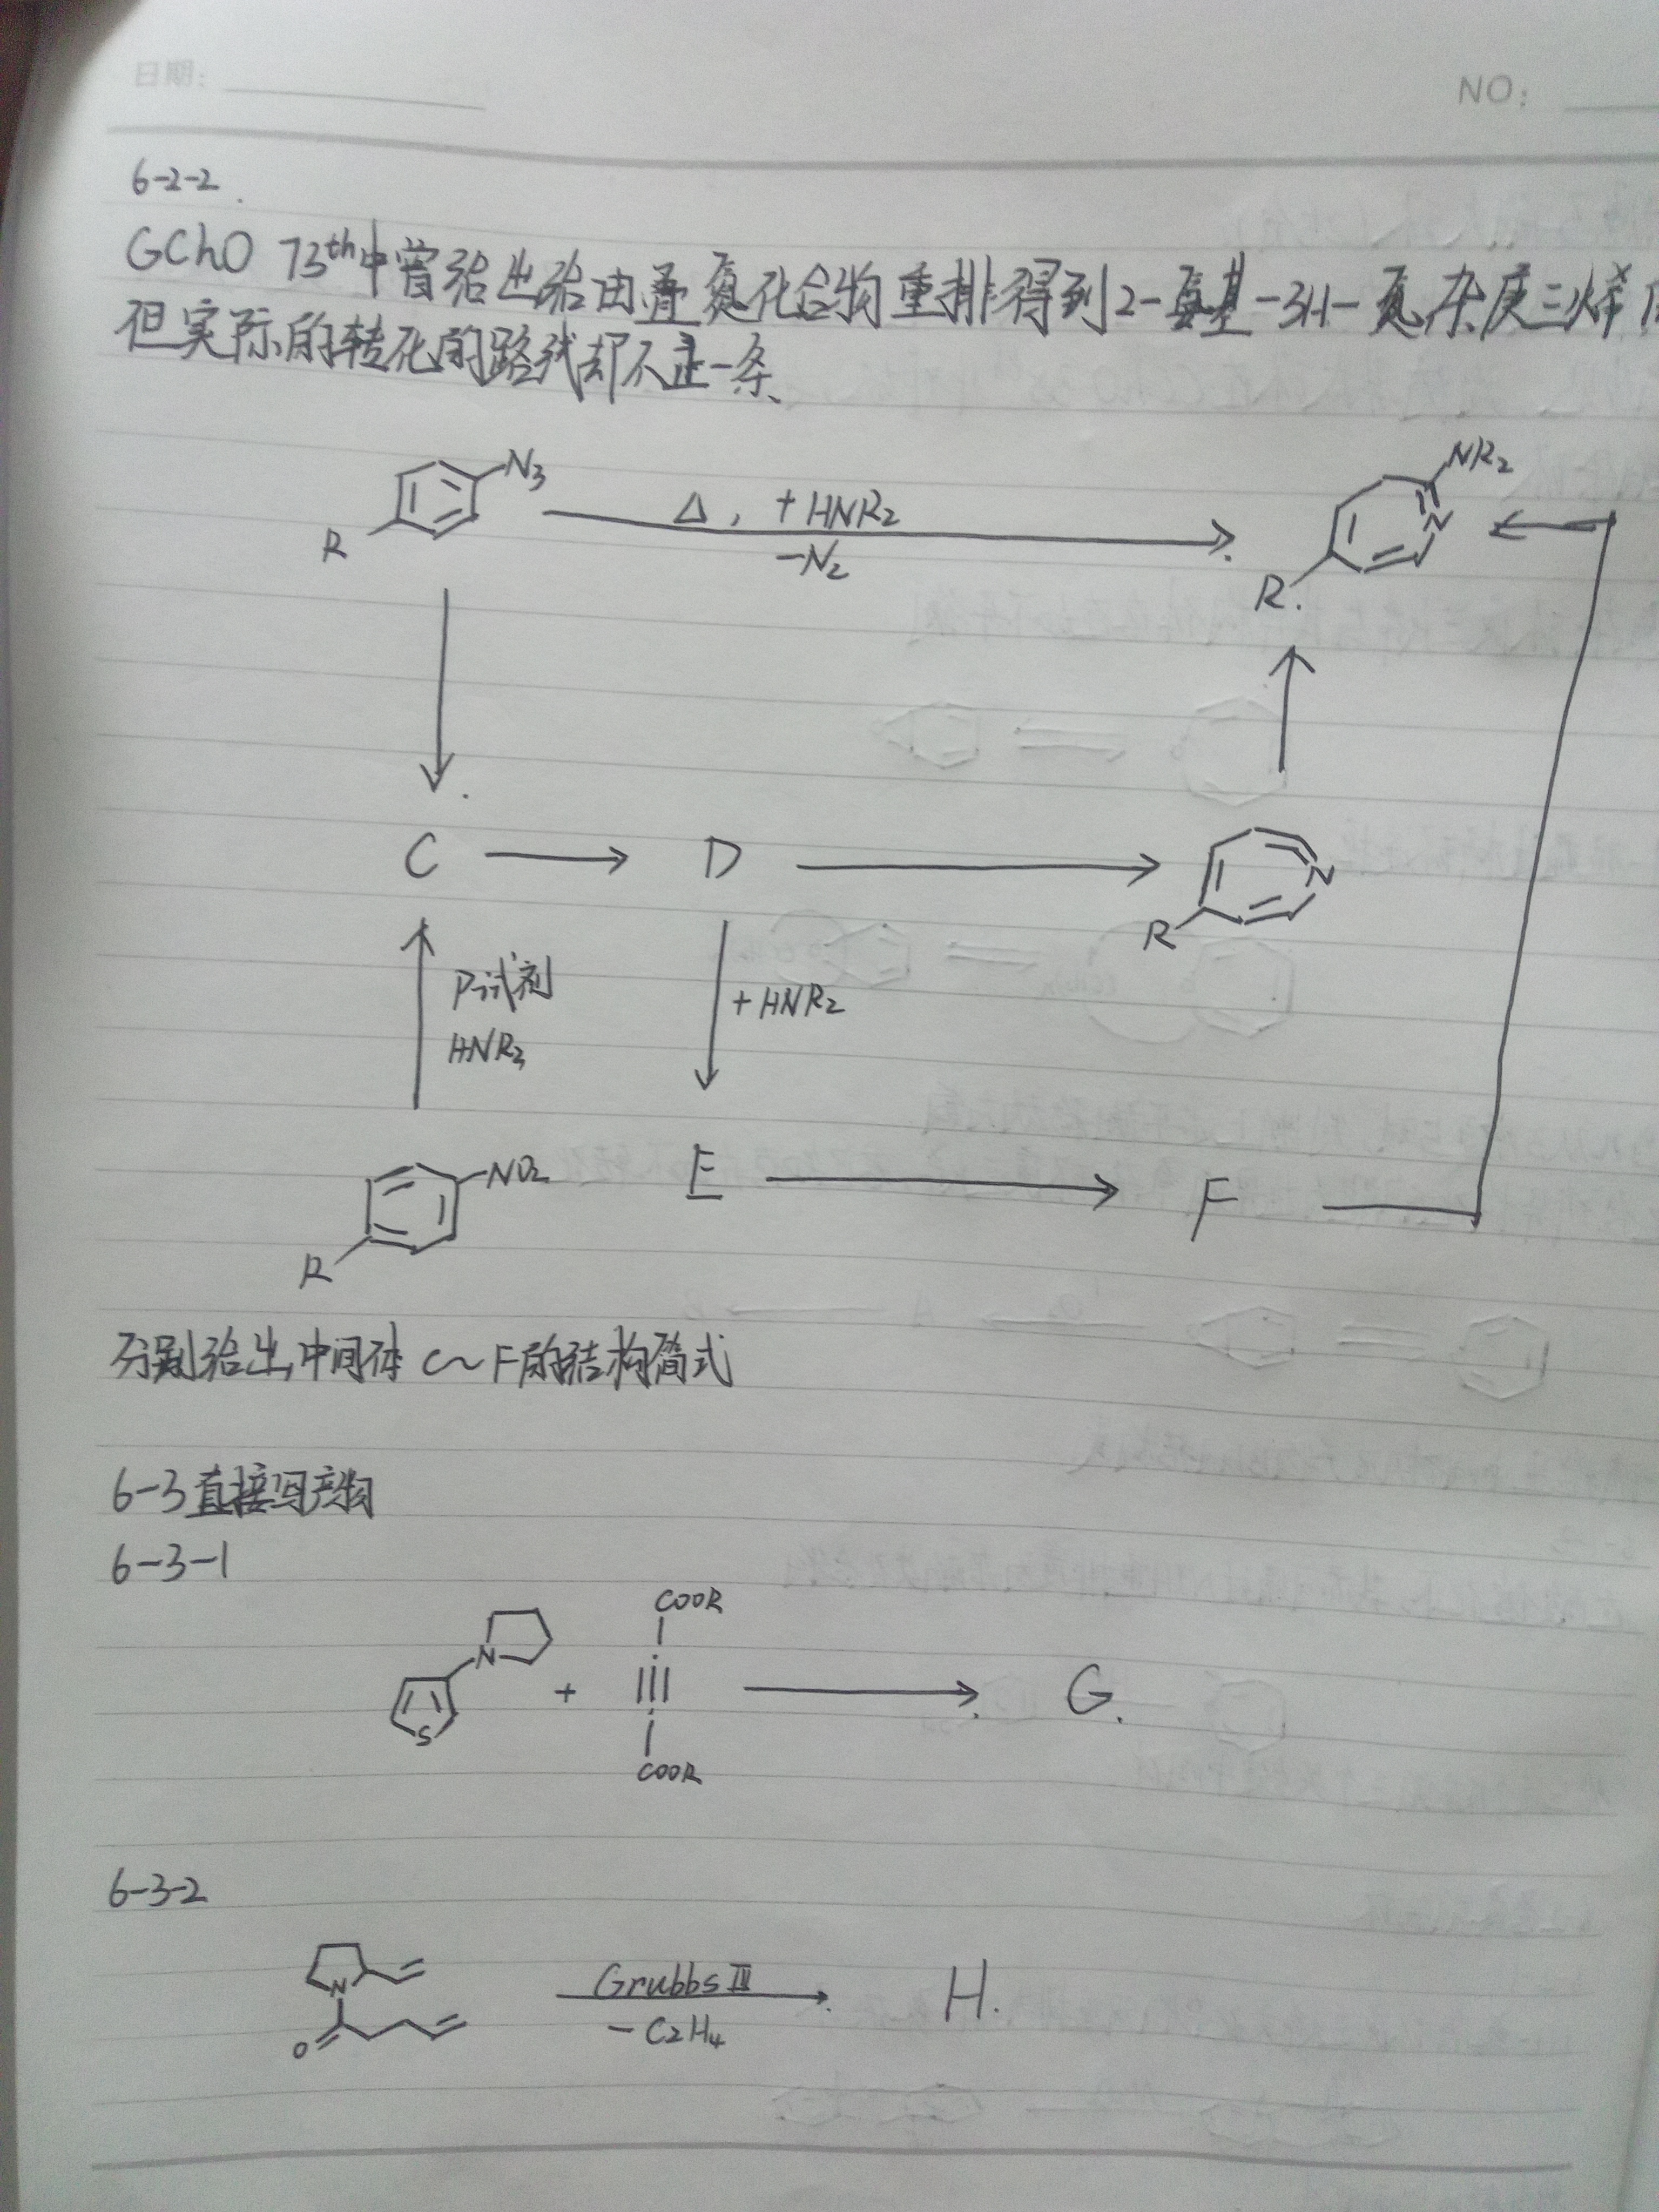 日期:
NO:
6-2-2
GChO 73th中曾给出给由叠氮化合物重排得到2-氨基-3H-氮杂庚三烯
但实际的转化的路线却不止一条
N3
R
Δ, +HNR2
-N2
NR2
N
R.
C
D
N
R
P试剂
HNR2
+HNR2
NO2
R
E
F
分别给出中间体 C~F的结构简式
6-3直接写产物
6-3-1
N
S
+
COOR
COOR
G.
6-3-2
N
O
Grubbs II
-C2H4
H.